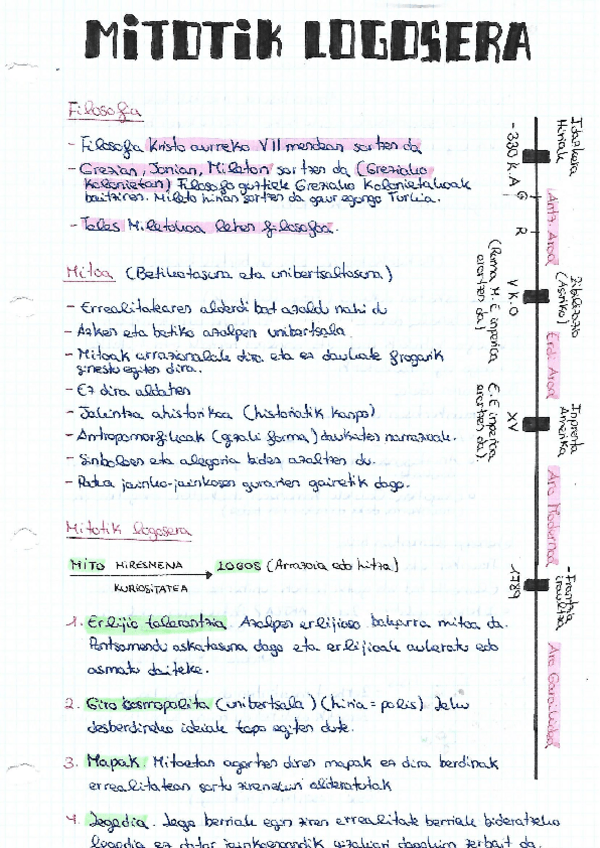 MITOTIK LOGOSERA
Filosofia
- Filosofia Kristo aurreko VII mendean sortzen da
- Grezian, Jonian, Mileton sortzen da (Greziako
kolonietan) Filosofo guztiek Greziako Kolonietakoak
baitziren. Mileto hirian sortzen da gaur egungo Turkia.
- Tales Miletokoa lehen filosofoa.
Mitoa (Betikotasuna eta unibertsaltasuna)
- Errealitatearen alderdi bat azaldu nahi du
- Azken eta betiko azalpen unibertsala
- Mitoak arrazionalak dira eta ez daukate frogarik
sinestu egiten dira.
- Ez dira aldatzen
- Jakintza ahistorikoa (historiatik kanpo)
- Antropomorfikoak (gizaki forma) daukaten narrazioak.
- Sinboloen eta alegoria bidez azaltzen du.
- Patua jainko-jainkosen gurarien gainetik dago.
Mitotik logosera
MITO MIRESMENA LOGOS (Arrazoia edo hitza)
KURIOSITATEA
1. Erlijio tolerantzia. Azalpen erlijioso bakarra mitoa da.
Pentsamendu askatasuna dago eta erlijioak aukeratu edo
asmatu daiteke.
2. Giro kosmopolita (unibertsala) (hiria = polis) Leku
desberdineko ideiak topo egiten dute.
3. Mapak. Mitoetan agertzen diren mapak ez dira berdinak
errealitatean sortu zirenekin alderatutak
4. Legedia. Lege berriak egin ziren errealitate berriak bideratzeko
legedia ez dator jainkoengandik gizakiari dagokion zerbait da.
Idazkera
Hiriak
-330 K.A
G
R
Antz. Aroa
Zibilizazio
V K.O
(Erroma M. E inperioa
erortzen da)
Erdi Aroa
Inprenta
Amerika
XV
E.E inperioa
erortzen da)
Aro Modernoa
- Frantzia
iraultza
1789
Aro Garaikidea